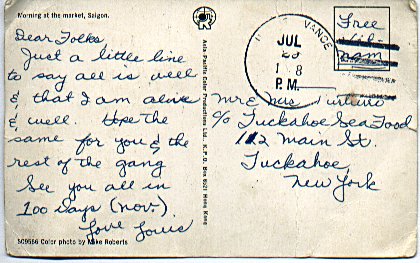 Morning at the market, Saigon.
Dear Folks
Just a little line
to say all is well
& that I am alive
& well. Hope the
same for you & the
rest of the gang
See you all in
100 days (nov.)
Love Louis
509556 Color photo by Mike Roberts
Asia Pacific Color Productions Ltd. K.P.O. Box 6521 Hong Kong
VANCE
JUL
P.M.
Free
Mr & Mrs
c/o Tuckahoe Sea Food
112 Main St.
Tuckahoe
New York